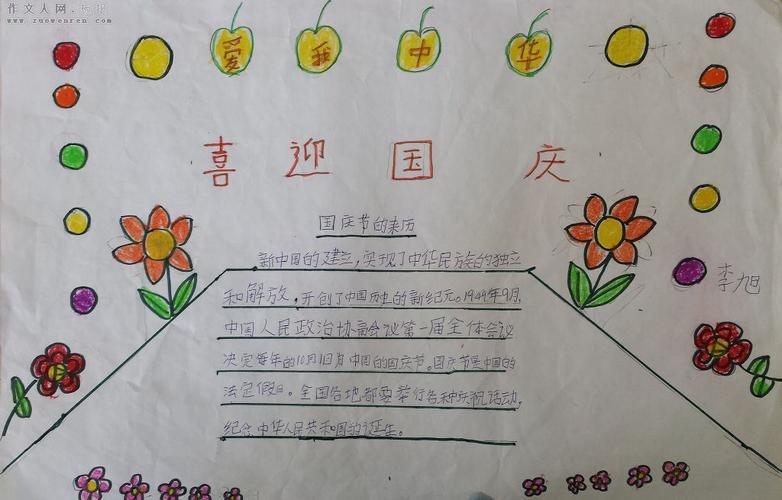 作文人网
www.zuowenren.com
爱我中华
喜迎国庆
国庆节的来历
新中国的建立,实现了中华民族的独立
和解放,开创了中国历史的新纪元。1949年9月,
中国人民政治协商会议第一届全体会议
决定每年的10月1日为中国的国庆节。国庆节是中国的
法定假日。全国各地都要举行各种庆祝活动,
纪念中华人民共和国的诞生。
李旭